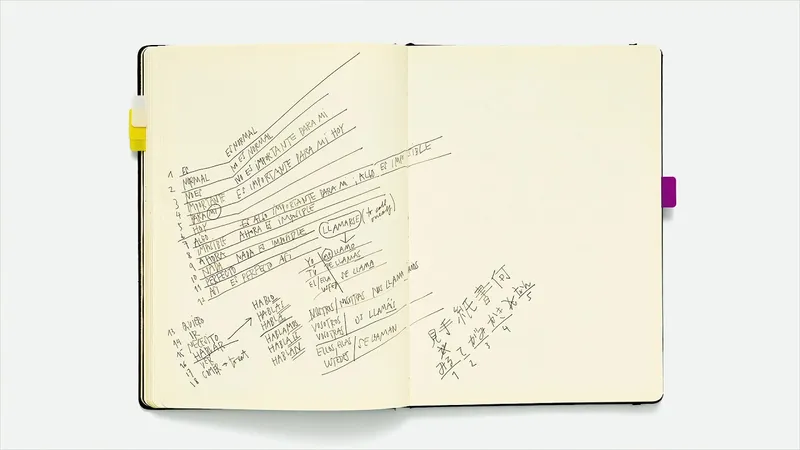 1 ES
2 NORMAL
3 NO ES
4 IMPORTANTE
5 PARA MI
6 HOY
7 ALGO
8 IMPOSIBLE
9 AHORA
10 NADA
11 PERFECTO
12 ASÍ
ES NORMAL
NO ES NORMAL
NO ES IMPORTANTE PARA MI
ES IMPORTANTE PARA MI HOY
ES ALGO IMPORTANTE PARA MI, ALGO ES IMPOSIBLE
AHORA ES IMPOSIBLE
NADA ES IMPOSIBLE
ES PERFECTO ASÍ
LLAMARSE (to call oneself)
YO ME LLAMO
TÚ TE LLAMAS
EL/ELLA SE LLAMA
NOSOTROS/NOSOTRAS NOS LLAMAMOS
VOSOTROS
VOSOTRAS OS LLAMÁS
ELLOS, ELLAS SE LLAMAN
13 QUIERO
14 IR
15 PERFECTO
16 HABLAR
17 VER
18 COMER → to eat
HABLO
HABLAS
HABLA
HABLAMOS
HABLAIS
HABLAN
見 手 紙 書 何
1 2 3 4 5